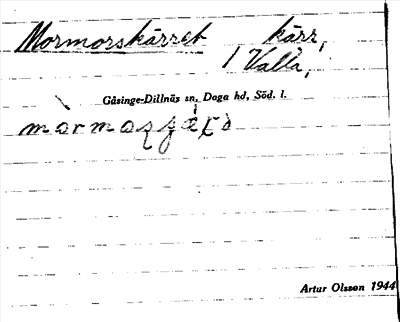 Mormorskärret kärr,
1 Valla,
Gåsinge-Dillnäs sn, Daga hd, Söd. l.
Artur Olsson 1944